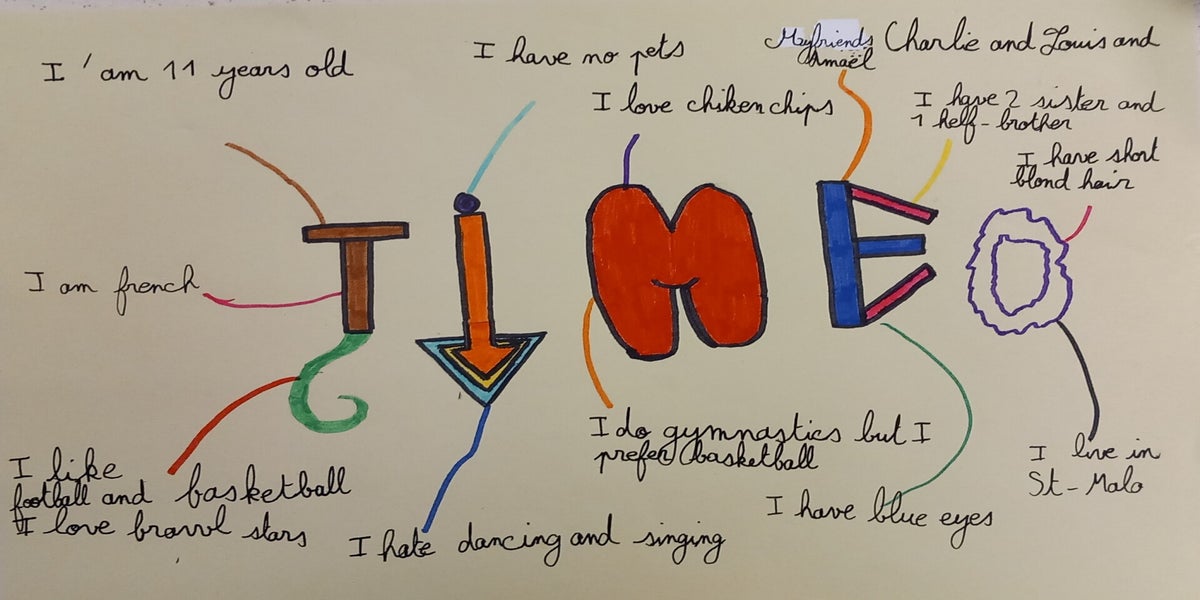 I'am 11 years old
I have no pets
My friends Charlie and Louis and
Amaël
I love chiken chips
I have 2 sister and
1 helf-brother
I have short
blond hair
TIMEO
I am french
I like
football and basketball
I love brawl stars
I hate dancing and singing
I do gymnastics but I
prefer basketball
I have blue eyes
I live in
St-Malo